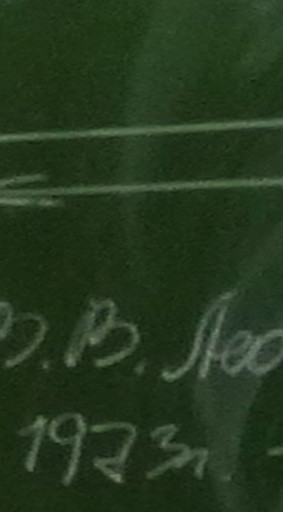 В. В. Лео
1973г. -